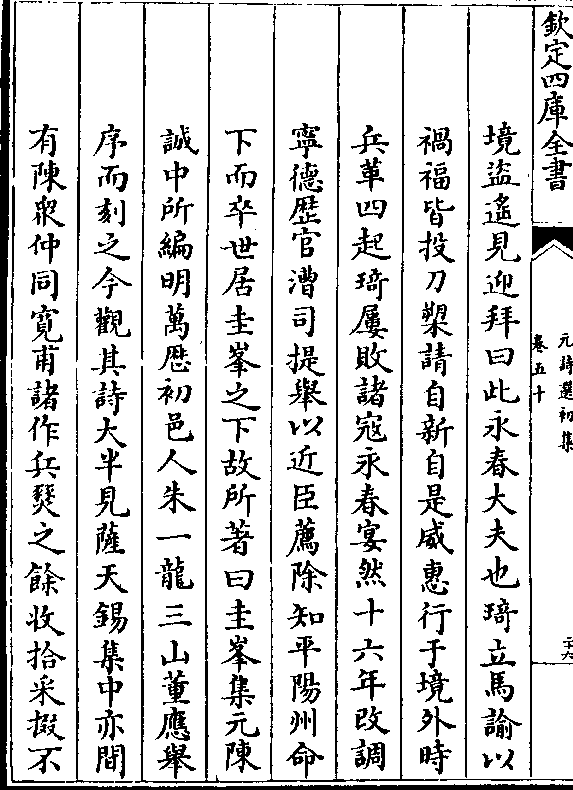 欽定四庫全書
元詩選初集
卷五十
二十六
境盜遙見迎拜曰此永春大夫也琦立馬諭以
禍福皆投刀槊請自新自是威惠行于境外時
兵革四起琦屢敗諸寇永春宴然十六年改調
寧德歴官漕司提舉以近臣薦除知平陽州命
下而卒世居圭峯之下故所著曰圭峯集元陳
誠中所編明萬厯初邑人朱一龍三山董應舉
序而刻之今觀其詩大半見薩天錫集中亦間
有陳衆仲同寛甫諸作兵燹之餘收拾采掇不